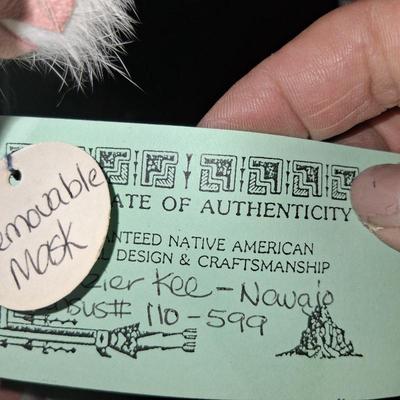 Removable
Mask
ATE OF AUTHENTICITY
ANTEED NATIVE AMERICAN
L DESIGN & CRAFTSMANSHIP
zier Kee - Navajo
bus# 110-599